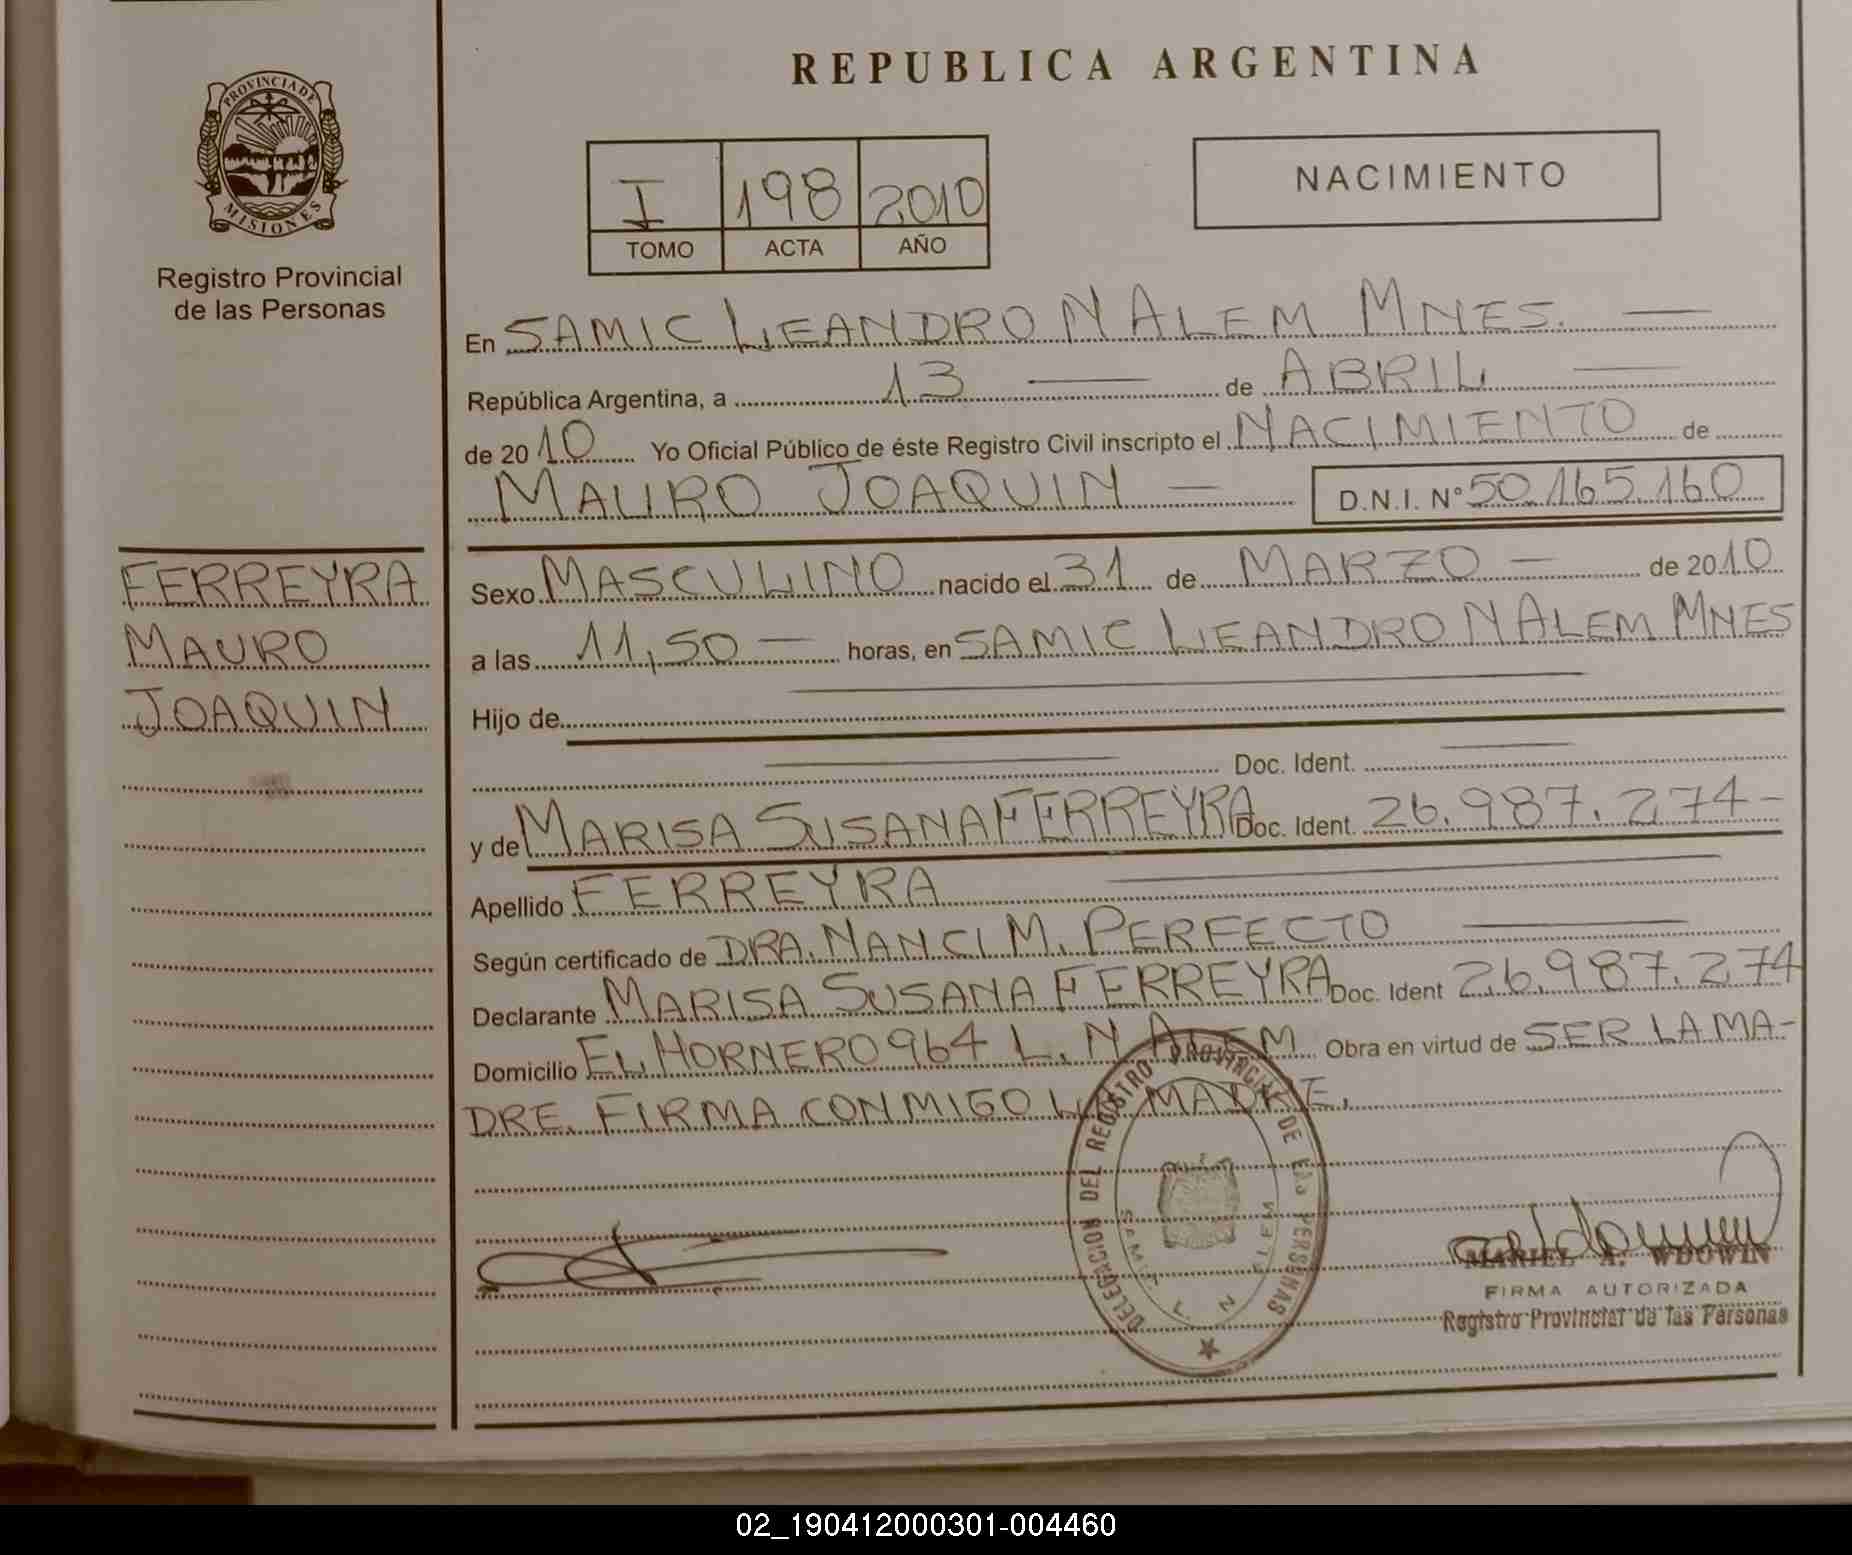 PROVINCIA DE
MISIONES
Registro Provincial
de las Personas
REPUBLICA ARGENTINA
I 198 2010
TOMO ACTA AÑO
NACIMIENTO
En SAMIC LEANDRO N ALEM MNES.
República Argentina, a 13 de ABRIL
de 2010 Yo Oficial Público de éste Registro Civil inscripto el NACIMIENTO de
MAURO JOAQUIN D.N.I. N° 50.165.160
FERREYRA
MAURO
JOAQUIN
Sexo MASCULINO nacido el 31 de MARZO de 2010
a las 11,50 horas, en SAMIC LEANDRO N ALEM MNES
Hijo de
Doc. Ident.
y de MARISA SUSANA FERREYRA Doc. Ident. 26.987.274-
Apellido FERREYRA
Según certificado de DRA. NANCI M. PERFECTO
Declarante MARISA SUSANA FERREYRA Doc. Ident 26.987.274
Domicilio EL HORNERO 964 L. N ALEM Obra en virtud de SER LA MA-
DRE. FIRMA CONMIGO LA MADRE.
DELEGACION DEL REGISTRO PROVINCIAL DE LAS PERSONAS
SAMIC L N ALEM
MARIEL A. WDOWIN
FIRMA AUTORIZADA
Registro Provincial de las Personas
02_190412000301-004460